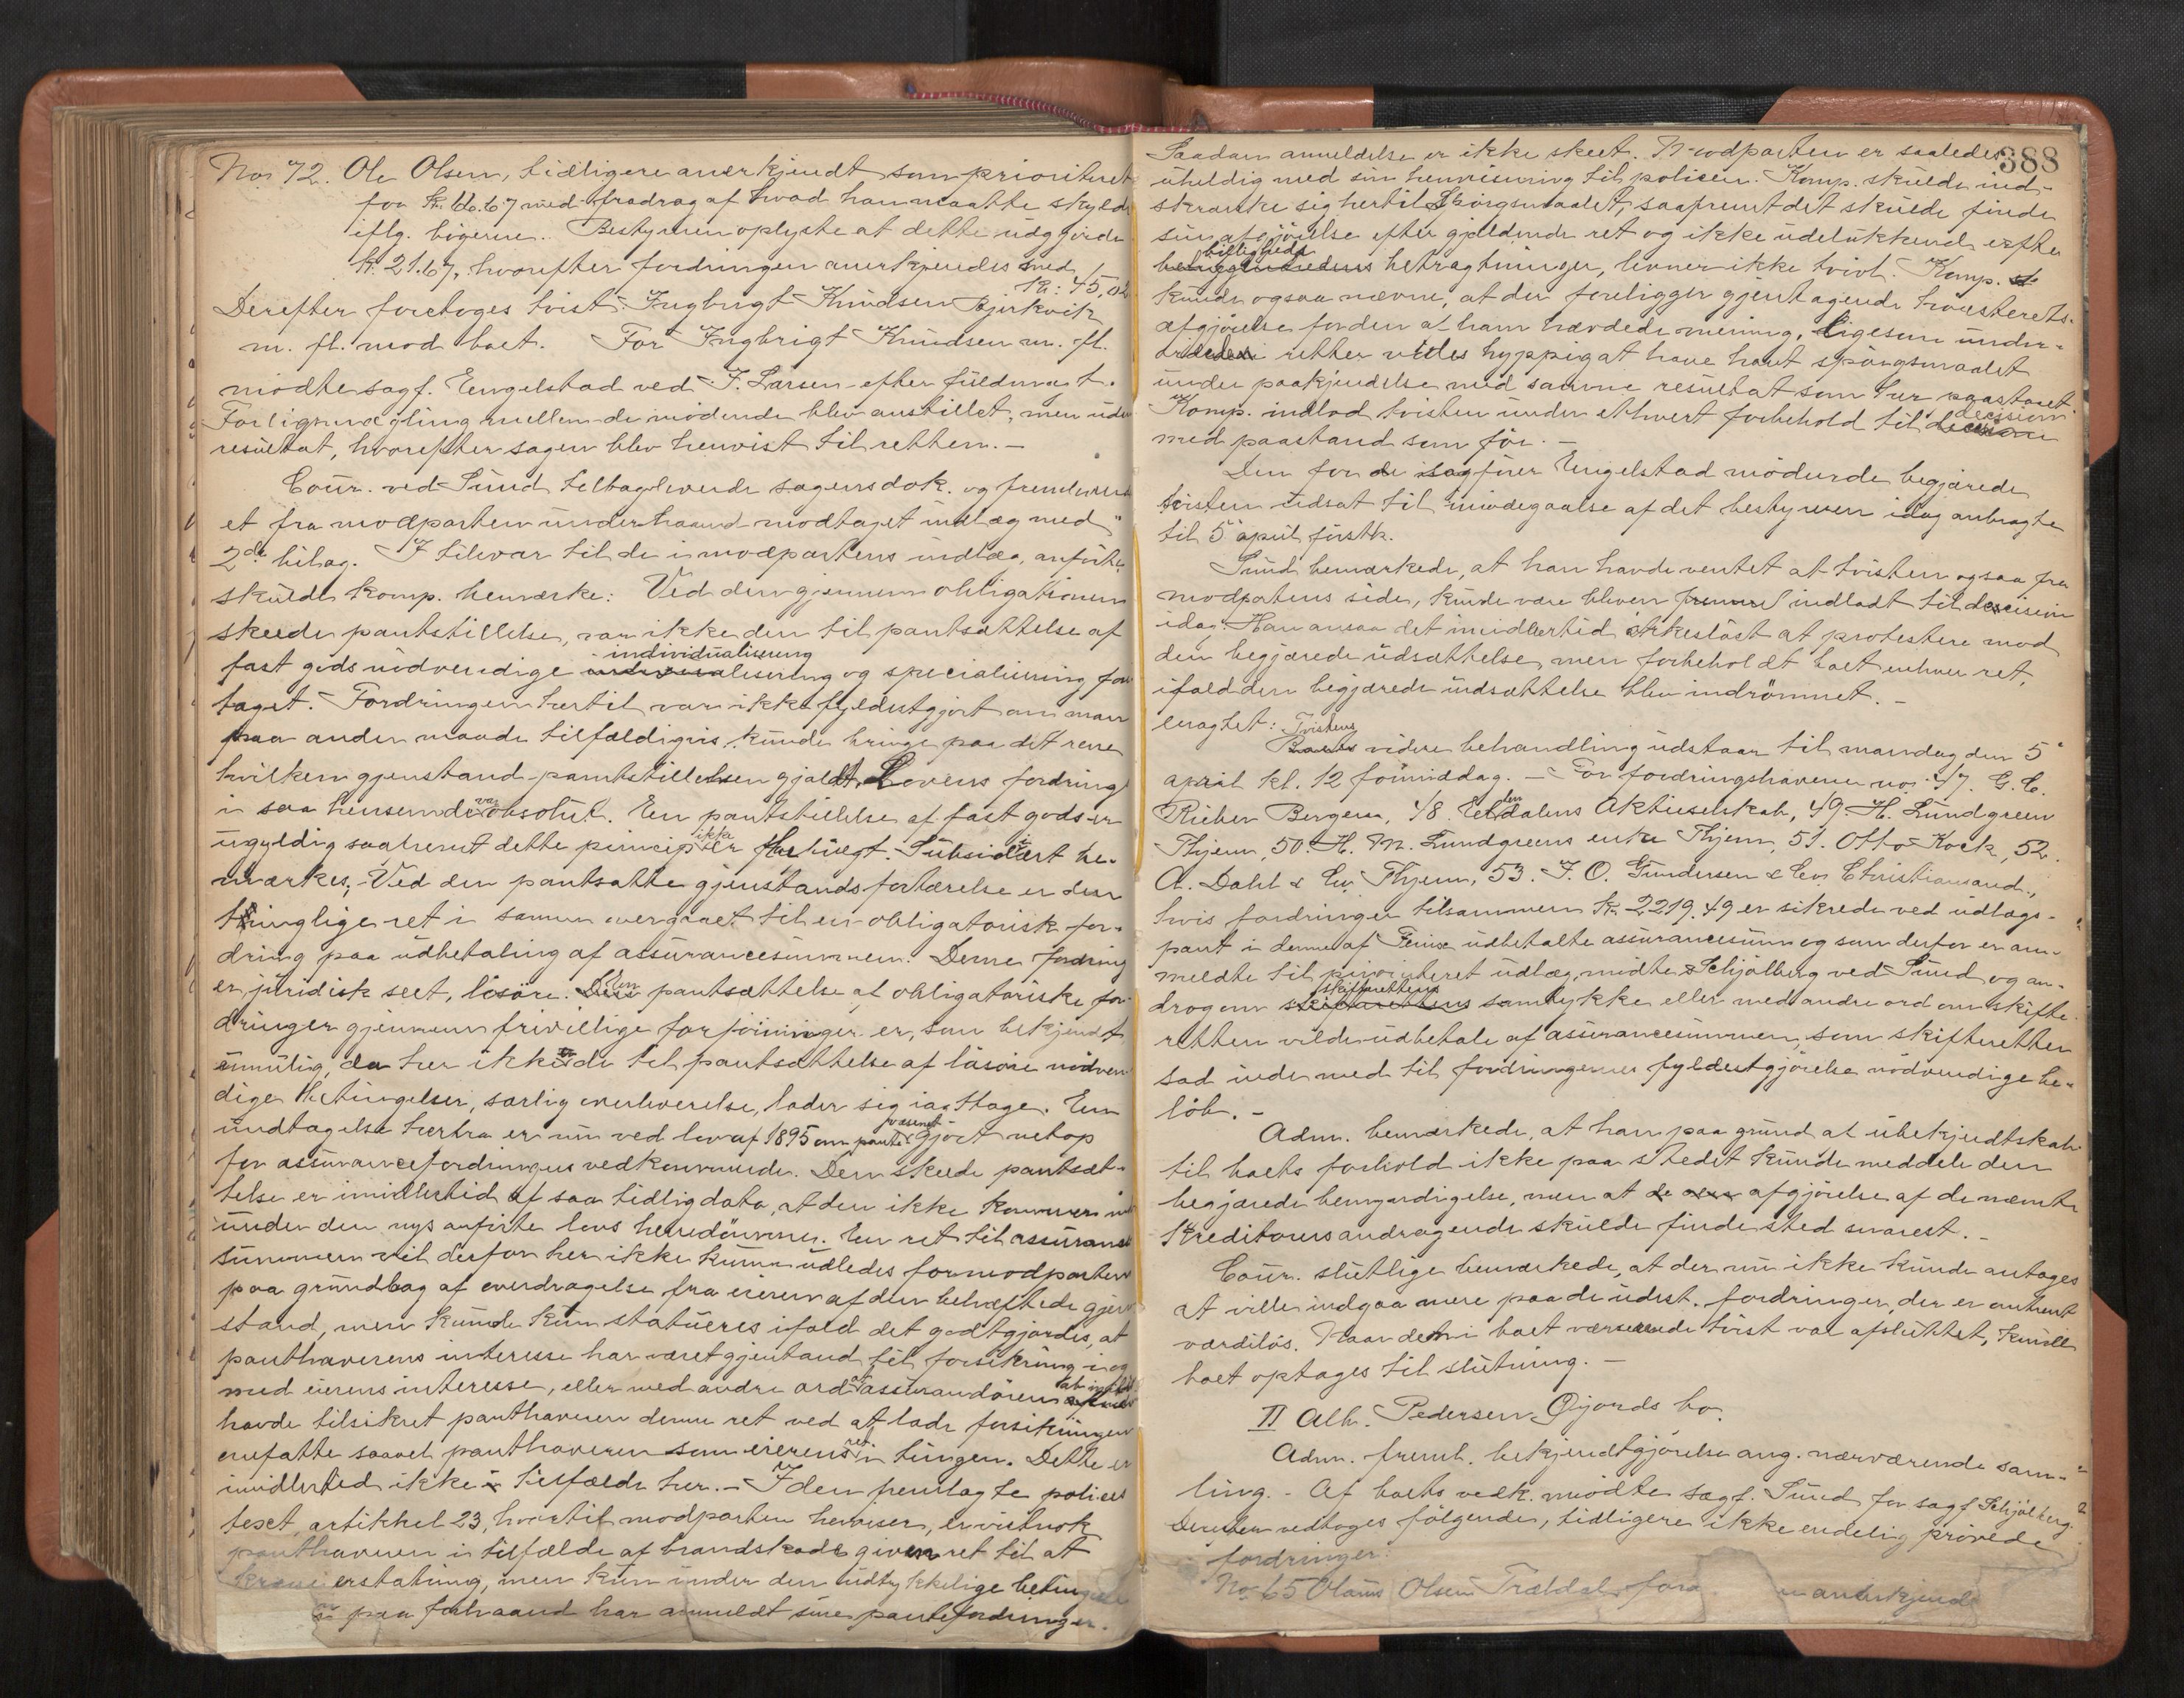 No 72. Ole Olsen, tidligere anerkjendt som prioriteret
for kr. 66.67 med fradrag af hvad han maatte skylde
iflg. bøgerne. Bestyreren oplyste at dette udgjorde
kr. 21.67, hvorefter fordringen anerkjendes med
kr: 45,02
Derefter foretoges tvist: Ingbrigt Knudsen Bjerkvik
m. fl. mod boet. For Ingbrigt Knudsen m. fl.
mødte sagf. Engelstad ved J. Larsen efter fuldmagt.
Forligsmægling mellem de mødende blev anstillet, men uden
resultat, hvorefter sagen blev henvist til retten. —
Cour. ved Sund tilbageleverede sagens dok. og fremleverede
et fra modparten underhaand modtaget indlæg med
2de bilag. I tilsvar til de i modpartens indlæg anførte
skulde komp. bemærke: Ved den gjennem obligationen
skeede pantstillelse, var ikke den til pantsættelse af
individualisering
fast gods nødvendige og specialisering fore
taget. Fordringen hertil var ikke fyldestgjort om man
paa anden maade tilfældigvis kunde bringe paa det rene
hvilken gjenstand pantstillelsen gjaldt. Lovens fordring
i saa henseende var absolut. En pantstillelse af fast gods er
ugyldig saafremt dette princip ikke er fulgt. Subsidiært be-
mærkes, Ved den pantsatte gjenstands fortærelse er den
tinglige ret i samme overgaaet til en obligatorisk for-
dring paa udbetaling af assurancesummen. Denne fordring
er, juridisk seet, løsøre. Den pantsættelse af obligatoriske for-
dringer gjennem frivillige forføininger er, som bekjendt
umulig, da her ikke de til pantsættelse af løsøre nødven-
dige betingelser, særlig overleverelse, lader sig iagttage. En
undtagelse herfra er nu ved lov af 1895 om pantevæsenet gjort netop
for assurancefordringers vedkommende. Den skeede pantsæt-
telse er imidlertid af saa tidlig dato, at den ikke kommer ind
under den nys anførte lovs herredømme. En ret til assurance
summen vil derfor her ikke kunne udledes for modparten
paa grundlag af overdragelse fra eieren af den behæftede gjen
stand, men kunde kun statueres ifald det godtgjordes, at
panthaverens interesse har været gjenstand for forsikring i og
med eierens interesse, eller med andre ord at assurandøren
havde tilsikret panthaveren denne ret ved at lade forsikringen
omfatte saavel panthaveren som eierens ret i tingen. Dette er
imidlertid ikke tilfælde her. — I den fremlagte polices
text, artikkel 23, hvortil modparten henviser, er vistnok
panthaveren i tilfælde af brandskade given ret til at
kræve erstatning, men kun under den udtrykkelige betingelse
paa forhaand har anmeldt sine pantefordringer.
388
Saadan anmeldelse er ikke skeet. Modparten er saaledes
uheldig med sin henvisning til policen. Komp. skulde ind-
skrænke sig hertil. Spørgsmaalet, saafremt det skulde finde
sin afgjørelse efter gjældende ret og ikke udelukkende efter
billigheds
betragtninger, levner ikke tvivl. Komp.
kunde ogsaa nævne, at der foreligger gjentagende høiesterets-
afgjørelse for den af ham hævdede mening, ligesom under-
ordnede retter vides hyppig at have havt spørgsmaalet
under paakjendelse med samme resultat som her paastaaet.
Komp. indlod tvisten under ethvert forbehold til decision
med paastand som før. —
Den for sagfører Engelstad mødende begjærede
tvisten udsat til imødegaaelse af det bestyreren idag anbragte
til 5 april førstk.
Sund bemærkede, at han havde ventet at tvisten ogsaa fra
modpartens side, kunde være bleven indladt til decision
idag. Han ansaa det imidlertid ørkesløst at protestere mod
den begjærede udsættelse, men forbeholdt boet enhver ret,
ifald den begjærede udsættelse blev indrømmet. —
eragtet: Tvistens
videre behandling udstaar til mandag den 5
april kl. 12 formiddag. — For fordringshaverne no. 47. G. C.
Rieber Bergen, 48. Aktieselskab, 49. H. Lundgreen
Thjem, 50. H. M. Lundgreens enke Thjem, 51. Otto Kock, 52.
A. Dahl & Co. Thjem, 53. J. O. Gundersen & Co. Christiansand,
hvis fordringer tilsammen kr. 2219.49 er sikrede ved udlægs-
pant i denne af udbetalte assurancesum og som derfor er an-
meldte til prioriteret udlæg, mødte Schjølberg ved Sund og an-
skifterettens
drog om samtykke eller med andre ord om skifte-
retten vilde udbetale af assurancesummen, som skifteretten
sad inde med til fordringernes fyldestgjørelse nødvendige be-
løb. —
Adm. bemærkede, at han paa grund af ubekjendtskab
til boets forhold ikke paa stedet kunde meddele den
begjærede bemyndigelse, men at afgjørelse af de nævnte
kreditorers andragende skulde finde sted snarest. —
Cour. sluttelige bemærkede, at der nu ikke kunde antages
at ville indgaa mere paa de udest. fordringer, der er omtrent
værdiløs. Naar den i boet værserende tvist var afsluttet, kunde
boet optages til slutning. —
II Alb. Pedersen Øijords bo.
Adm. freml. bekjendtgjørelse ang. nærværende sam-
ling. - Af boets vedk. mødte sagf. Sund for sagf. Schjølberg.
Derefter vedtoges følgende, tidligere ikke endelig prøvede
fordringer:
No 65 Olaus Olsen Trældal, anerkjendt